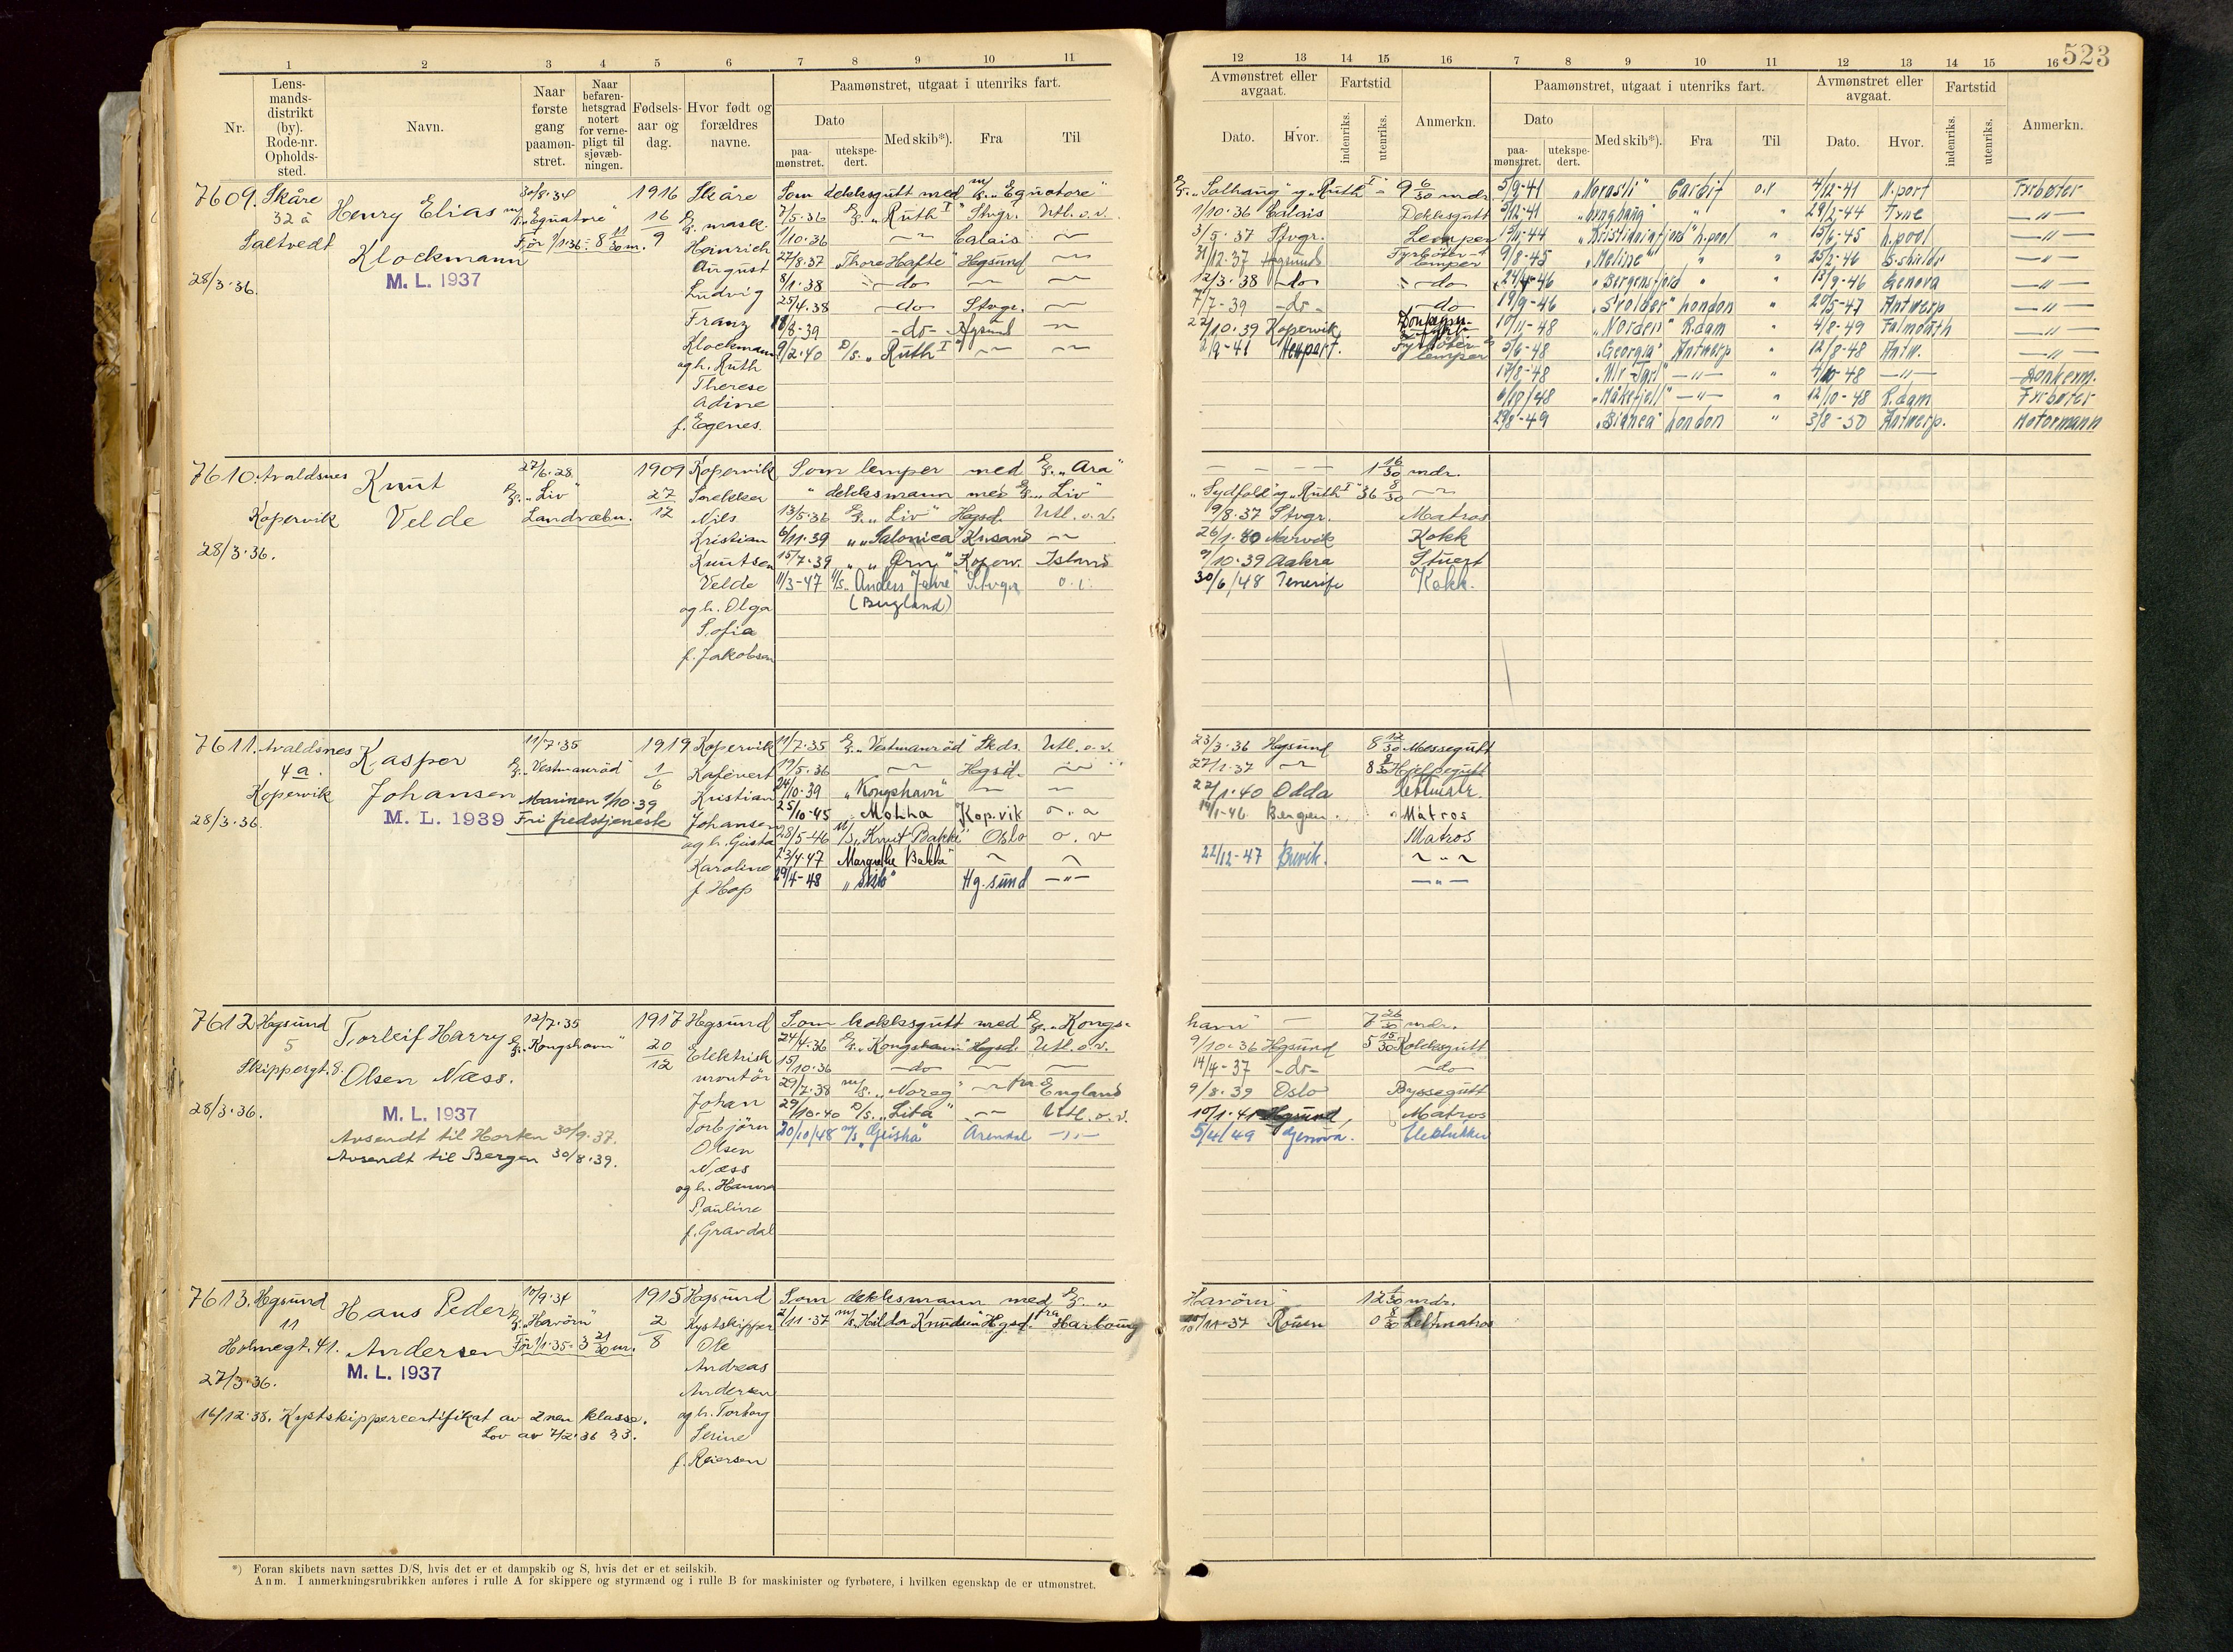 523
1 2 3 4 5 6 7 8 9 10 11
12 13 14 15 16 7 8 9 10 11 12 13 14 15 16
Nr.
Lens-
mands-
distrikt
(by).
Rode-nr.
Opholds-
sted.
Navn.
Naar
første
gang
paamøn-
stret.
Naar
befaren-
hetsgrad
notert
for verne-
pligt til
sjøvæb-
ningen.
Fødsels-
aar og
dag.
Hvor født og
forældres
navne.
Paamønstret, utgaat i utenriks fart.
Dato
paa-
mønstret.
utekspe-
dert.
Med skib*).
Fra
Til
Avmønstret eller
avgaat.
Dato.
Hvor.
Fartstid
indenriks.
utenriks.
Anmerkn.
Paamønstret, utgaat i utenriks fart.
Dato
paa-
mønstret.
utekspe-
dert.
Med skib*).
Fra
Til
Avmønstret eller
avgaat.
Dato.
Hvor.
Fartstid
indenriks.
utenriks.
Anmerkn.
7609. Skåre
32 a
Saltvedt
28/3.36.
Henry Elias
Klockmann
M. L. 1937
30/8.34
"Equatore"
Før 1/1 36 = 8 11/30 m.
1916
16
9
Skåre
mask.
Heinrich
August
Ludvig
Franz
Klockmann
og h. Ruth
Therese
Adine
f. Egenes.
Som dekksgutt med m/s. "Equatore"
7/5.36 "Ruth I" Stvgr. Utl. o. v.
1/10.36 Calais
27/8.37 "Thore Hafte" Hgsund
8/1.38 do
25/4.38 do Stvgr.
18/8-39 -do- Hgsund
9/2.40 D/s. "Ruth I"
"Solhaug" og "Ruth I" = 9 6/30 mdr.
1/10.36 Calais Dekksgutt
3/5.37 Stvgr. Lemper
31/12.37 Hgsund Fyrbøter-lemper
12/3.38 do do
7/7-39 -do- do
22/10.39 Kopervik Donkeym.
2/9-41 Newport. Fyrbøter lemper
5/9-41 "Norasli" Cardif o.v 4/12-41 N.port Fyrbøter
5/12-41 "Lynghaug" " " 29/2-44 Tyne —"—
15/11-44 "Kristianiafjord" L.pool " 15/6-45 L.pool —"—
9/8-45 "Meline" " " 25/2-46 S-shields —"—
24/4-46 "Bergensfjord " " 13/9-46 Genova —"—
19/9-46 "Svolder" London " 20/5-47 Antwerp —"—
10/11-48 "Norden" R.dam " 4/8-49 Falmouth —"—
5/6-48 "Georgia" Antwerp " 12/8-48 Antw. —"—
17/8-48 —"— " 4/10-48 —"— Donkerm.
6/10/48 "Måkefjell" —"— " 12/10-48 R.dam Fyrbøter
29/8-49 "Bianca" London " 3/8-50 Antwerp. Motormann
7610. Avaldsnes
Kopervik
28/3.36.
Knut
Velde
27/6.28
"Liv"
Landvæbn.
1909
27
12
Kopervik
Snekker
Nils
Kristian
Knutsen
Velde
og h. Olga
Sofia
f. Jakobsen
Som lemper med "Ara"
" dekksmann med "Liv"
13/5.36 "Liv" Hgsd. Utl. o. v.
6/11.39 "Salonica" Krisand
15/7.39 " " Ørn" Koperv. Island
11/3-47 "Anders Jahre" Stvgr o. v.
(Bugland)
1 16/30 mdr.
"Sydfold" og "Ruth I" 36 8/30
9/8.37 Stvgr. Matros
26/1.40 Narvik Kokk
9/10.39 Aakra Stuert
30/6/48 Tenerife Kokk.
7611. Avaldsnes
4 a.
Kopervik
28/3.36.
Kasper
Johansen
M. L. 1939
11/7.35
"Vestmanrød"
Marinen 1/10.39
Fri fredstjeneste
1919
1
6
Kopervik
Kafévert
Kristian
Johansen
og h. Gusta
Karoline
f. Hop
11/7.35 "Vestmanrød" Skds. Utl. o. v.
19/5.36 Hgsd.
24/10.39 "Kongshavn"
25/10-45 Molha Kop.vik o. a
28/5-46 M/s. "Knut Bakke" Oslo o. v
23/4 47 Margrethe Bakke"
29/4-48 "Skib" Hg.sund —"—
23/3.36 Hgsund 8 12/30 Messegutt
27/1.37 8 8/30 Hjelpegutt
22/1.40 Odda Lettmatr.
14/1-46 Bergen Matros
Matros
22/12-47 Brevik.
—"—
7612 Hgsund
5
Skippergt. 8.
28/3.36.
Torleif Harry
Olsen Næss.
M. L. 1937
Avsendt til Horten 30/9.37.
Avsendt til Bergen 30/8.39.
12/7.35
"Kongshavn"
1917
20
12
Hgsund
Elektrisk
montør
Johan
Torbjörn
Olsen
Næss
og h. Hanna
Pauline
f. Gravdal
Som kokksgutt med "Kongs-
24/4.36 "Kongshavn" Hgsd. Utl. o. v.
15/10.36 do
29/7.38 m/s. "Noreg" fra England
29/10.40 D/s. "Lita" Utl. o. v.
20/10/48 m/s "Geisha" Arendal
havn" — 7 26/30 mdr.
9/10.36 Hgsund 5 15/30 Kokksgutt
14/4-37 -do- do
9/8.39 Oslo Byssegutt
10/1.41 Hgsund, Matros
5/4/49 Genova.
7613. Hgsund
11
Holmegt. 41.
27/3.36.
Hans Peder
Andersen
M. L. 1937
16/12.38. Kystskippercertifikat av 2nen klasse.
Lov av 7/2.36 § 3.
17/9.34
"Havörn"
Før 1/1.35 = 3 21/30 m.
1915
2
8
Hgsund
Kystskipper
Ole
Andreas
Andersen
og h. Torborg
Serine
f. Reiersen
Som dekksmann med "
2/11.37 m/s. "Hilda Knudsen" Hgsd. fra Harbourg
Havörn" 12 /30 mdr.
10/11-37 Rouen 0 8/30 Lettmatros
*) Foran skibets navn sættes D/S, hvis det er et dampskib og S, hvis det er et seilskib.
Anm. I anmerkningsrubrikken anføres i rulle A for skippere og styrmænd og i rulle B for maskinister og fyrbøtere, i hvilken egenskap de er utmønstret.